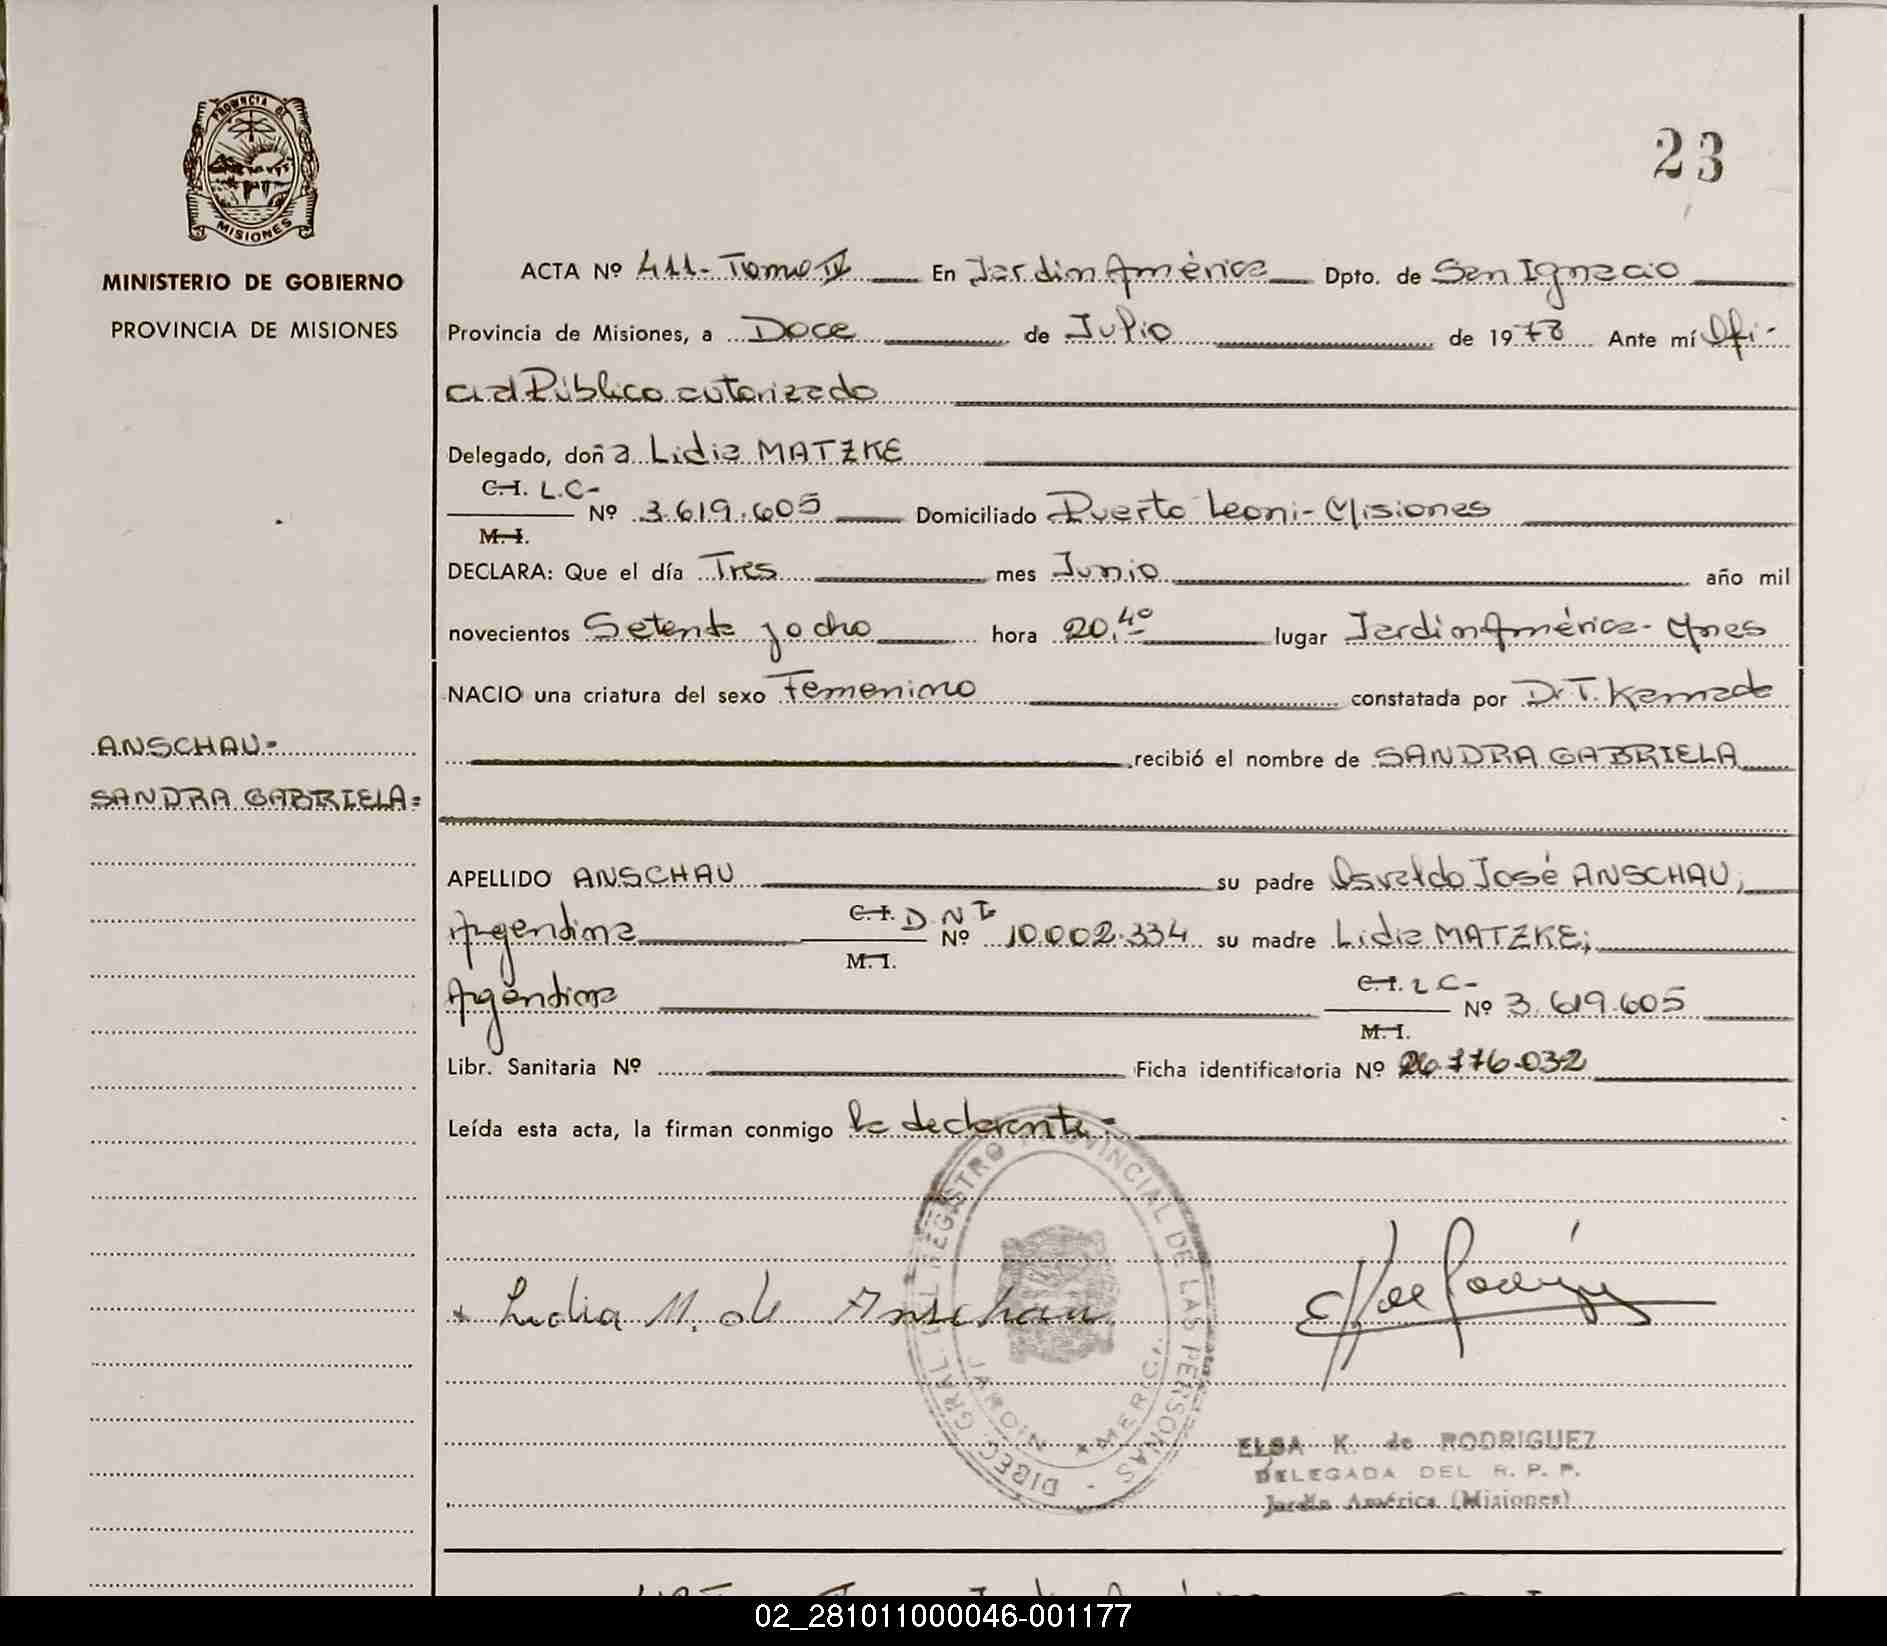 PROVINCIA DE
MISIONES
MINISTERIO DE GOBIERNO
PROVINCIA DE MISIONES
ANSCHAU=
SANDRA GABRIELA=
23
ACTA Nº 411- Tomo IV En Jardin América Dpto. de San Ignacio
Provincia de Misiones, a Doce de Julio de 1978 Ante mí Ofi-
cial Público autorizado
Delegado, doña Lidia MATZKE
C.I. L.C-
Nº 3.619.605 Domiciliado Puerto Leoni- Misiones
M.I.
DECLARA: Que el día Tres mes Junio año mil
novecientos Setenta y ocho hora 20,40 lugar Jardin América- Mnes
NACIO una criatura del sexo Femenino constatada por Dr T.
recibió el nombre de SANDRA GABRIELA
APELLIDO ANSCHAU su padre Osvaldo José ANSCHAU;
Argentina C.I. D N I. Nº 10.002.334 su madre Lidia MATZKE;
M.I.
Argentina C.I. L C- Nº 3.619.605
M.I.
Libr. Sanitaria Nº Ficha identificatoria Nº 26.776.032
Leída esta acta, la firman conmigo la declarante=
DIREC. GRAL. DEL REGISTRO PROVINCIAL DE LAS PERSONAS
JARDIN AMERICA
x Lidia M. de Anschau
ELSA K. de RODRIGUEZ
DELEGADA DEL R. P. P.
Jardín América (Misiones)
02_281011000046-001177